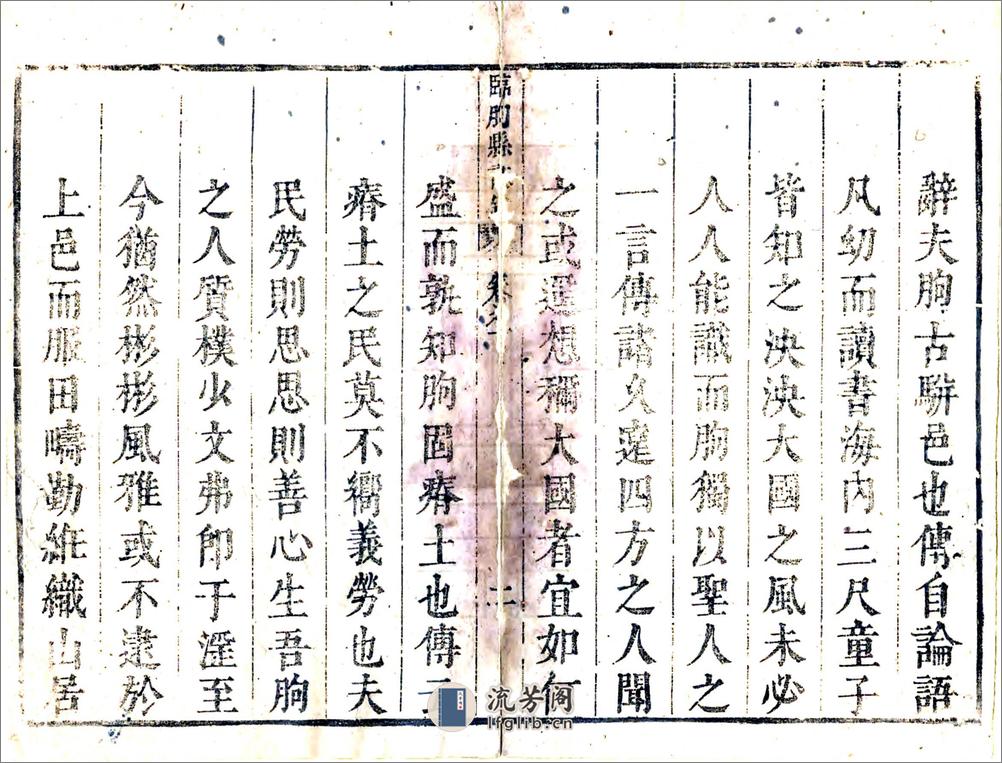 辭夫朐古駢邑也傳自論語
凡幼而讀書海内三尺童子
皆知之泱泱大國之風未必
人人能識而朐獨以聖人之
一言傳諸久遠四方之人聞
之或遥想稱大國者宜如何
臨朐縣
卷之
二
盛而孰知朐固瘠土也傳云
瘠土之民莫不嚮義勞也夫
民勞則思思則善心生吾朐
之人質樸少文弗卽于溼至
今猶然彬彬風雅或不逮於
上邑而服田疇勤維織山居
流芳阁
lfglib.cn